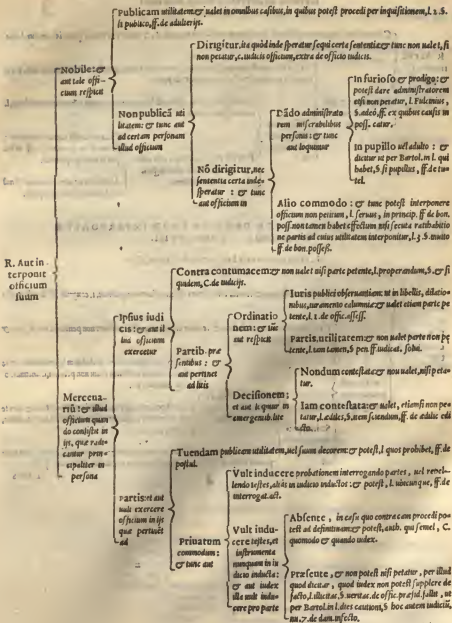 Publicam utilitatem: & ualet in omnibus casibus, in quibus potest procedi per inquisitionem, l. 2. §.
si publico, ff. de adulterijs.
Nobile: &
aut tale offi-
cium respicit
Dirigitur, ita quòd inde speratur sequi certa sententia: & tunc non ualet, si
non petatur, c. iudicis officium, extra de officio iudicis.
Non publicā uti
litatem: & tunc aut
ad certam personam
illud officium
Nō dirigitur, nec
sententia certa inde
speratur : & tunc
aut officium in
Dādo administrato
rem miserabilibus
personis : & tunc
aut loquimur
In furioso & prodigo: &
potest dare administratorem
etsi non petatur, l. Fulcinius,
§. adeò, ff. ex quibus causis in
poss. eatur.
In pupillo uel adulto : &
dicitur ut per Bartol. in l. qui
habet, § si pupillus, ff. de tu-
tel.
Alio commodo : & tunc potest interponere
officium non petitum, l. seruus, in princip. ff. de bon.
poss. non tamen habet effectum nisi secuta ratihabitio
ne partis ad cuius utilitatem interponitur, l. 3. §. multo
ff. de bon. possess.
R. Aut in-
terponit
officium
suum
Contra contumacem: & non ualet nisi parte petente, l. properandum, §. & si
quidem, C. de iudicijs.
Ipsius iudi
cis : & aut il
lud officium
exercetur
Partib. præ
sentibus : &
aut pertinet
ad litis
Ordinatio
nem : & tūc
aut respicit
Iuris publici obseruantiam: ut in libellis, dilatio-
nibus, iuramento calumniæ: & ualet etiam parte pe
tente, l. 2. de offic. assess.
Partis utilitatem: & non ualet parte non pe
tente, l. non tamen, § pen. ff. iudicat. solui.
Decisionem :
et aut loquimur in
emergenti lite
Nondum contestata: & non ualet, nisi peta-
tur.
Iam contestata: & ualet, etiamsi non pe-
tatur, l. ædiles, §. nem sciendum, ff. de ædilic. edi
cto.
Mercena-
riū : & illud
officium quan
do consistit in
ijs, quæ radi-
cantur prin-
cipaliter in
persona
Partis: et aut
uult exercere
officium in ijs
quæ pertinēt
ad
Tuendam publicam utilitatem, uel suum decorem: & potest, l. quos prohibet, ff. de
postul.
Priuatum
commodum :
& tunc aut
Vult inducere probationem interrogando partes, uel repel-
lendo testes, aliàs in iudicio inductos : & potest, l. ubicunque, ff. de
interrogat. act.
Vult indu-
cere testes, et
instrumenta
nunquam in iu
dicio inducta:
& aut iudex
illa uult indu-
cere pro parte
Absente , in casu quo contra eam procedi po-
test ad definitiuam: & potest, auth. qui semel , C.
quomodo & quando iudex.
Præsente, & non potest nisi petatur , per illud
quod dicitur , quod iudex non potest supplere de
facto, l. illicitas, §. ueritas, de offic. præsid. fallit , ut
per Bartol. in l. dies cautioni, § hoc autem iudiciū,
nu. 7. de dam. infecto.